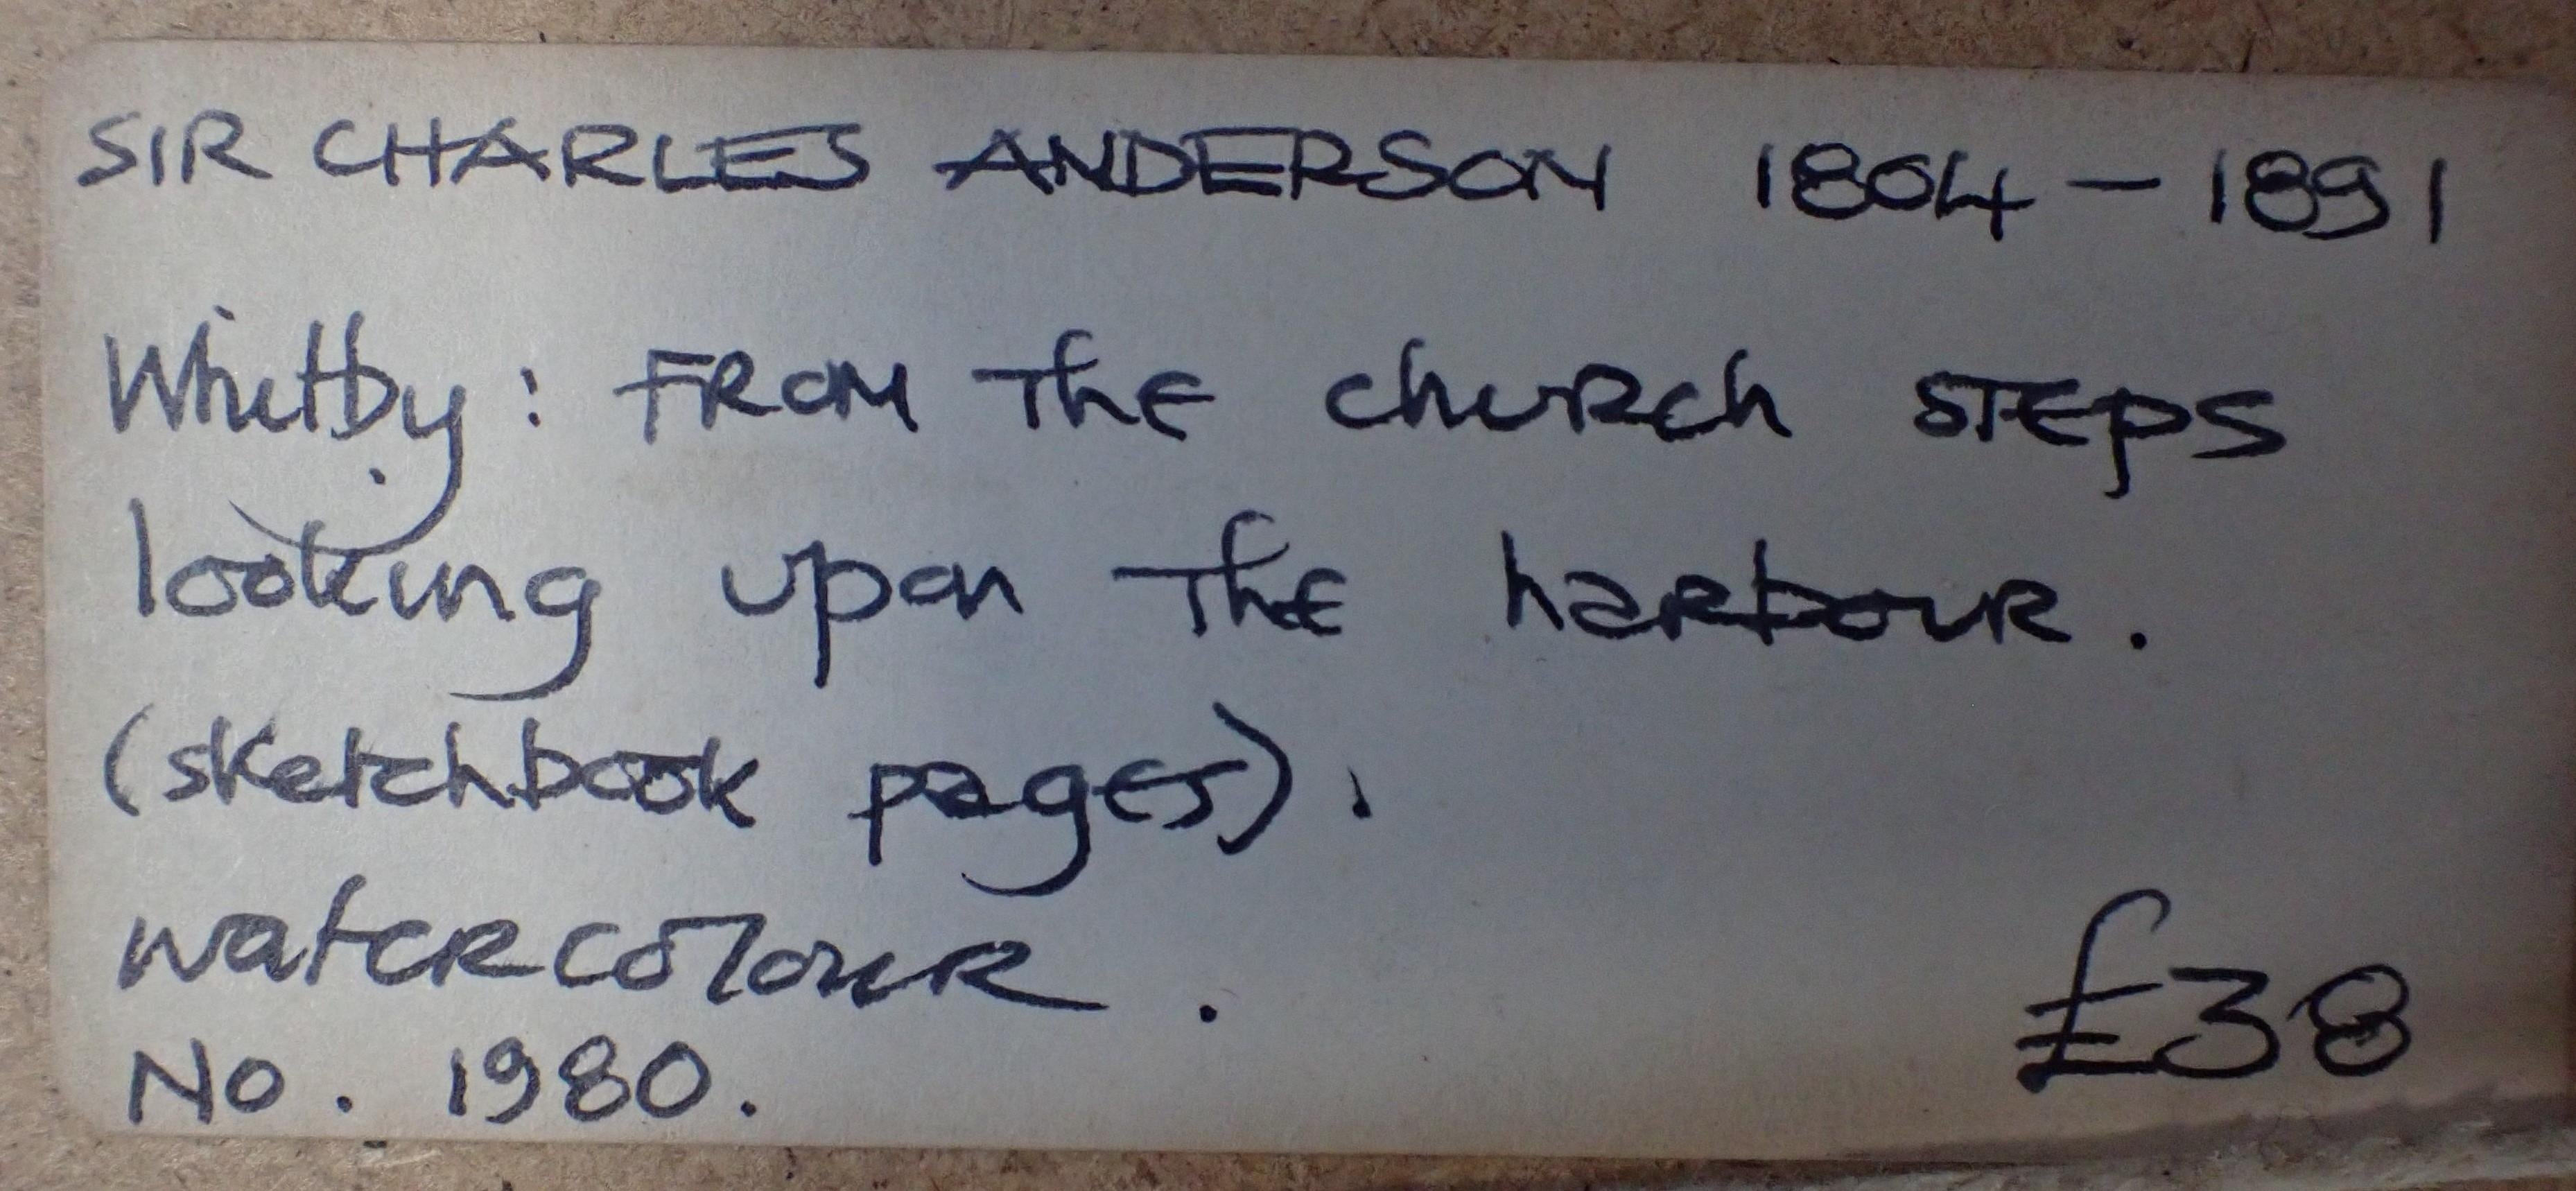 SIR CHARLES ANDERSON 1804-1891
Whitby: FROM The church STEPS
looking upon The harbour.
(sketchbook pages).
watercolour.
No. 1980.
£38